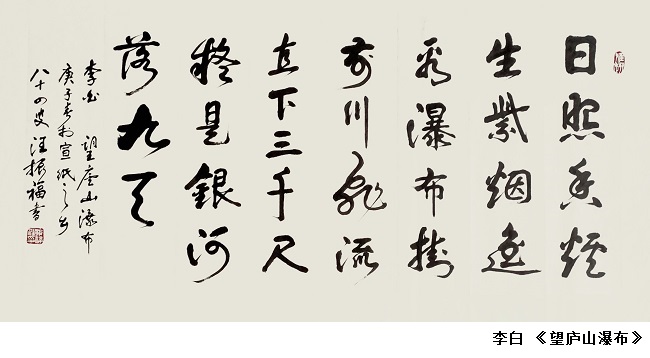 日照香爐
生紫烟遥
看瀑布掛
前川飛流
直下三千尺
疑是銀河
落九天
李白 望庐山瀑布
庚子春於宣紙之乡
八十四叟汪振福書
李白 《望庐山瀑布》